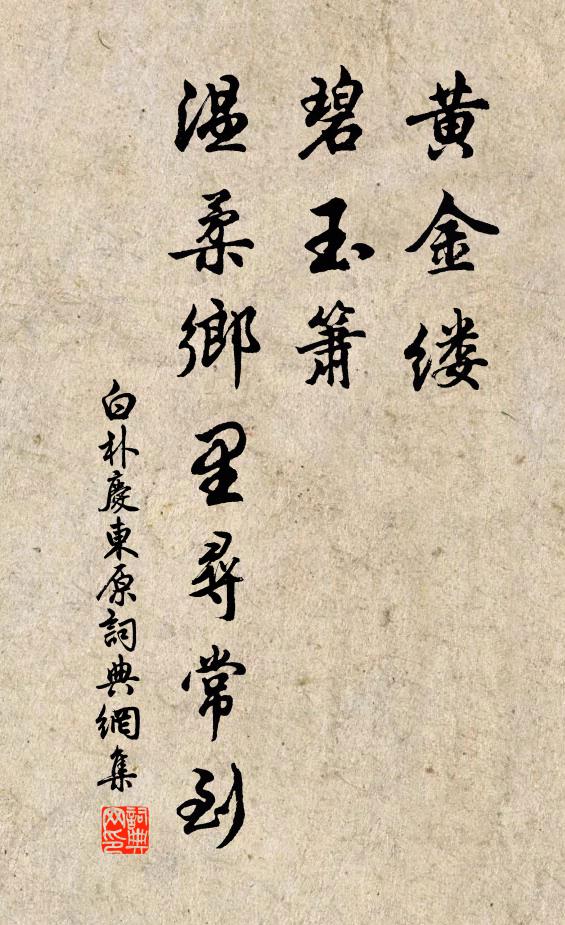 黄金缕
碧玉箫
温柔鄉里尋常到
白朴慶東原詞典網集
詞典网印